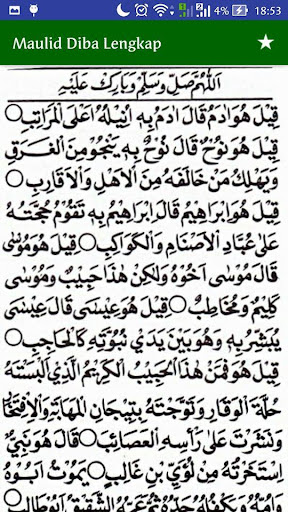 18:53
4%
Maulid Diba Lengkap
اَللّٰهُمَّ صَلِّ وَسَلِّمْ وَبَارِكْ عَلَيْهِ
قِيْلَ هُوَ اٰدَمُ قَالَ اٰدَمُ بِهٖ اُنِيْلُهُ اَعْلَى الْمَرَاتِبِ ○
قِيْلَ هُوَ نُوْحٌ قَالَ نُوْحٌ بِهٖ يَنْجُوْ مِنَ الْغَرَقِ
وَيَهْلِكُ مَنْ خَالَفَهُ مِنَ الْاَهْلِ وَالْاَقَارِبِ ○
قِيْلَ هُوَ اِبْرَاهِيْمُ قَالَ اِبْرَاهِيْمُ بِهٖ تَقُوْمُ حُجَّتُهُ
عَلٰى عُبَّادِ الْاَصْنَامِ وَالْكَوَاكِبِ ○ قِيْلَ هُوَ مُوْسٰى
قَالَ مُوْسٰى اَخُوْهُ وَلٰكِنْ هٰذَا حَبِيْبٌ وَمُوْسٰى
كَلِيْمٌ وَمُخَاطِبٌ ○ قِيْلَ هُوَ عِيْسٰى قَالَ عِيْسٰى
يُبَشِّرُ بِهٖ وَهُوَ بَيْنَ يَدَيْ نُبُوَّتِهٖ كَالْحَاجِبِ ○
قِيْلَ هُوَ فَمَنْ هٰذَا الْحَبِيْبُ الْكَرِيْمُ الَّذِيْ اَلْبَسْتَهُ
حُلَّةَ الْوَقَارِ وَتَوَّجْتَهُ بِتِيْجَانِ الْمَهَابَةِ وَالْاِفْتِخَارِ
وَنَشَرْتَ عَلٰى رَأْسِهِ الْعَصَائِبَ ○ قَالَ هُوَ نَبِيٌّ
اسْتَخَرْتُهُ مِنْ لُؤَيِّ بْنِ غَالِبٍ ○ يَمُوْتُ اَبُوْهُ
وَاُمُّهُ وَيَكْفُلُهُ جَدُّهُ ثُمَّ عَمُّهُ الشَّقِيْقُ اَبُوْطَالِبٍ